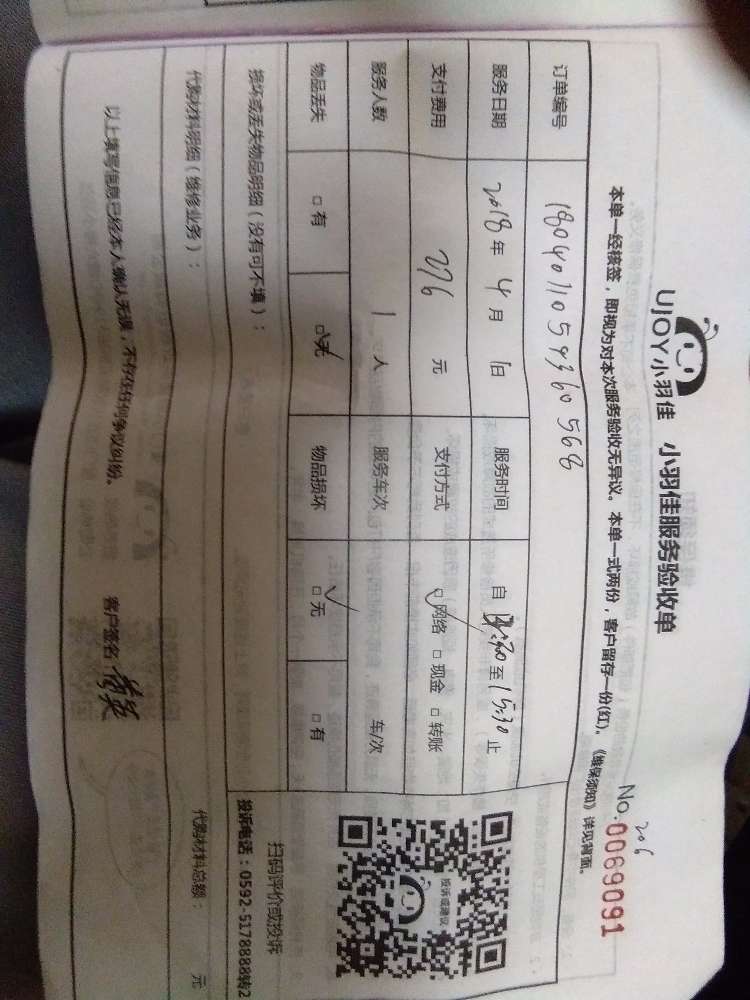 UJOY小羽佳 小羽佳服务验收单
206
No.0069091
本单一经核签，即视为对本次服务验收无异议。本单一式两份，客户留存一份(红)。《维保须知》详见背面。
订单编号 18040110594360568
服务日期 2018年 4月 1日 服务时间 自 14:30至15:30止
支付费用 276 元 支付方式 ☑网络 □现金 □转账
服务人数 1 人 服务车次 车/次
物品丢失 □有 ☑无 物品损坏 ☑无 □有
投诉或建议
扫码评价或投诉
投诉电话：0592-5178888转2
损坏或丢失物品明细（没有可不填）：
代购材料明细（维修业务）： 代购材料总额： 元
以上填写信息已经本人确认无误，不存在任何争议纠纷。 客户签名：